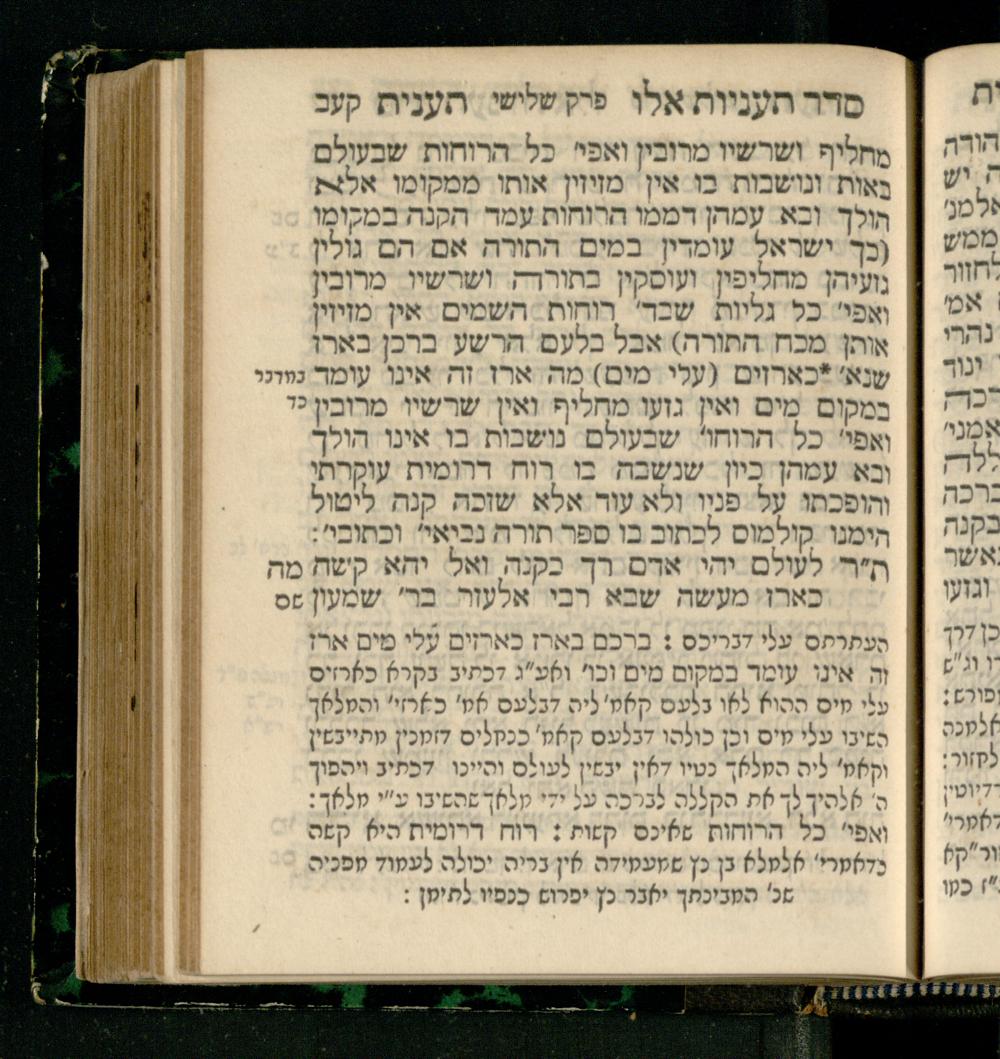 סדר תעניות אלו פרק שלישי תענית קעב
מחליף ושרשיו מרובין ואפי' כל הרוחות שבעולם
באות ונושבות בו אין מזיזין אותו ממקומו אלא
הולך ובא עמהן דממו הרוחות עמד הקנה במקומו
(כך ישראל עומדין במים התורה אם הם גולין
גזעיהן מחליפין ועוסקין בתורה ושרשיו מרובין
ואפי' כל גליות שבד' רוחות השמים אין מזיזין
אותן מכח התורה) אבל בלעם הרשע ברכן בארז
שנא' *כארזים (עלי מים) מה ארז זה אינו עומד
במדבר
במקום מים ואין גזעו מחליף ואין שרשיו מרובין
כד
ואפי' כל הרוחו' שבעולם נושבות בו אינו הולך
ובא עמהן כיון שנשבה בו רוח דרומית עוקרתו
והופכתו על פניו ולא עוד אלא שזכה קנה ליטול
הימנו קולמוס לכתוב בו ספר תורה נביאי' וכתובי':
ת"ר לעולם יהי אדם רך כקנה ואל יהא קשה מה
כארז מעשה שבא רבי אלעזר בר' שמעון
העתרתם עלי דבריכם : ברכם בארז כארזים עלי מים ארז
זה אינו עומד במקום מים וכו' ואע"ג דכתיב בקרא כארזים
עלי מים ההוא לאו בלעם קאמ' ליה דבלעם אמ' כארזי' והמלאך
השיבו עלי מים וכן כולהו דבלעם קאמ' כנחלים דזמנין מתייבשין
וקאמ' ליה המלאך נטיו דאין יבשין לעולם והיינו דכתיב ויהפוך
ה' אלהיך לך את הקללה לברכה על ידי מלאך שהשיבו ע"י מלאך:
ואפי' כל הרוחות שאינם קשות : רוח דרומית היא קשה
כדאמרי' אלמלא בן נץ שמעמידה אין בריה יכולה לעמוד מפניה
שנ' המבינתך יאבר נץ יפרוש כנפיו לתימן :